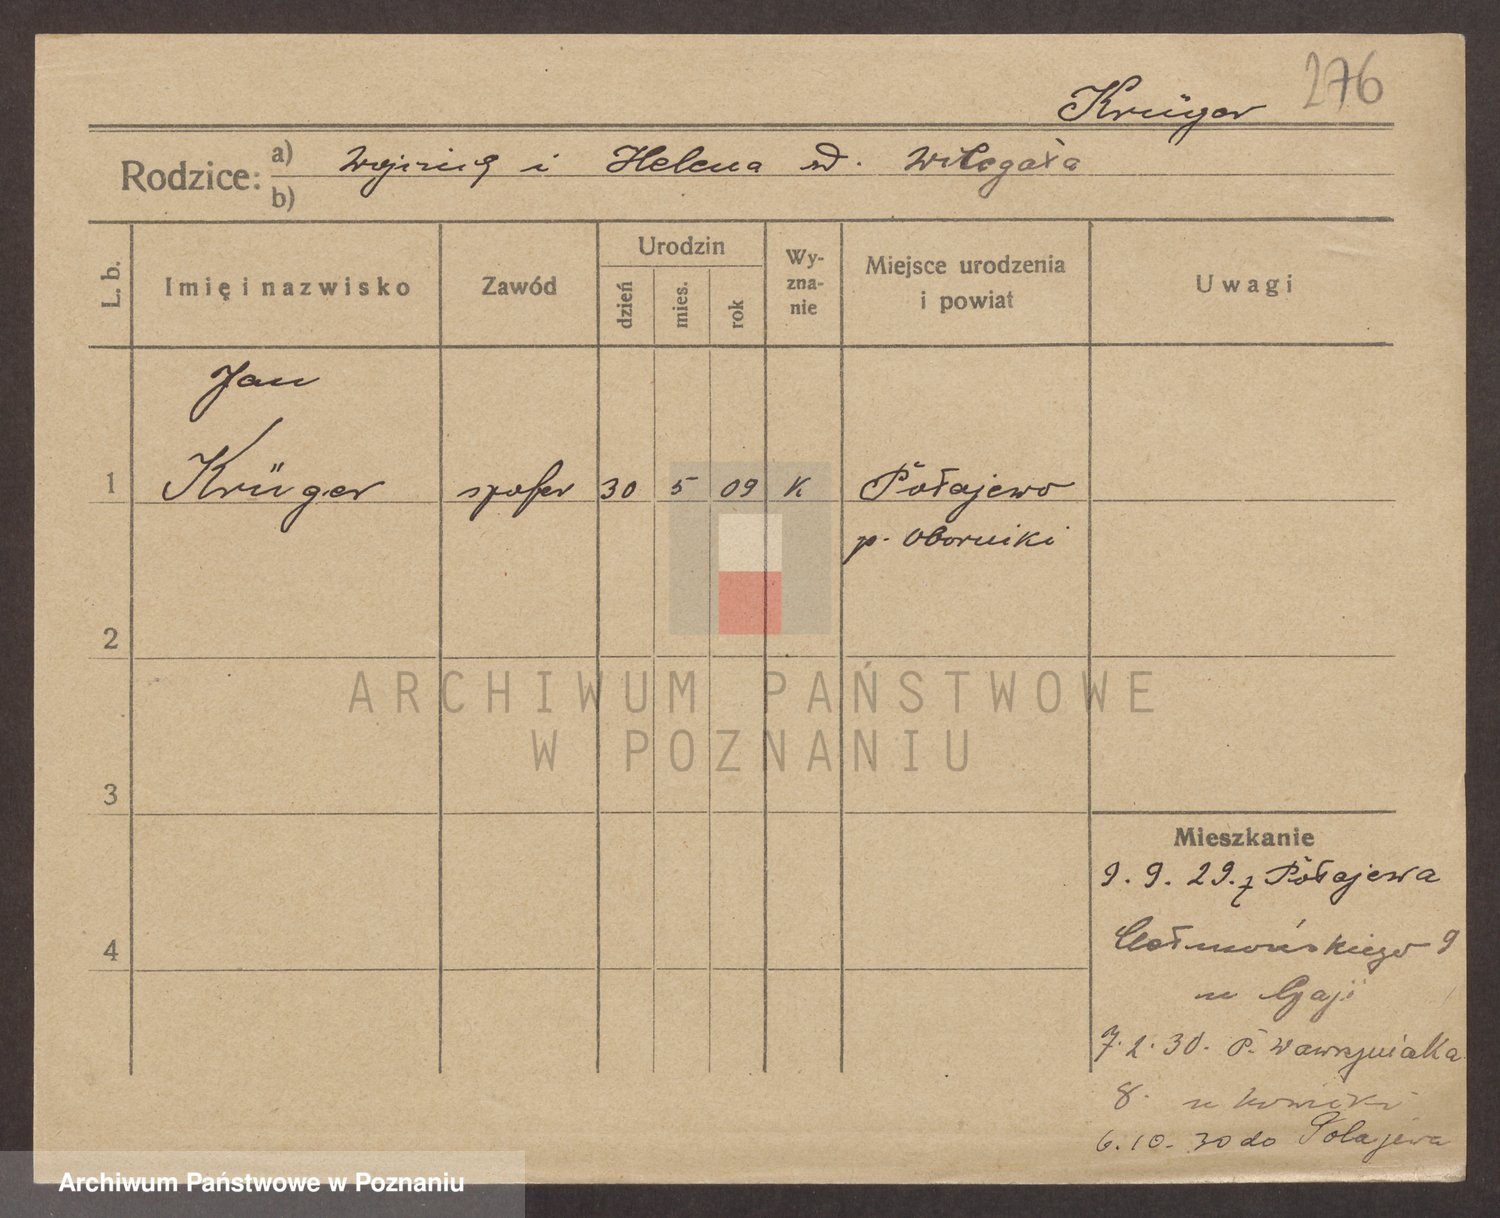 276
Krüger
Rodzice: a) Wojciech i Helena d. Wilegała
b)
L. b.
Imię i nazwisko
Zawód
Urodzin
dzień
mies.
rok
Wy-
zna-
nie
Miejsce urodzenia
i powiat
Uwagi
Jan
1 Krüger szofer 30 5 09 K Połajewo
p. Oborniki
2
ARCHIWUM PAŃSTWOWE
W POZNANIU
3
Mieszkanie
9. 9. 29. z Połajewa
4
Chełmońskiego 9
u
7. 2. 30. P. Wawrzyniaka
8. u
6. 10. 30 do Połajewa
Archiwum Państwowe w Poznaniu